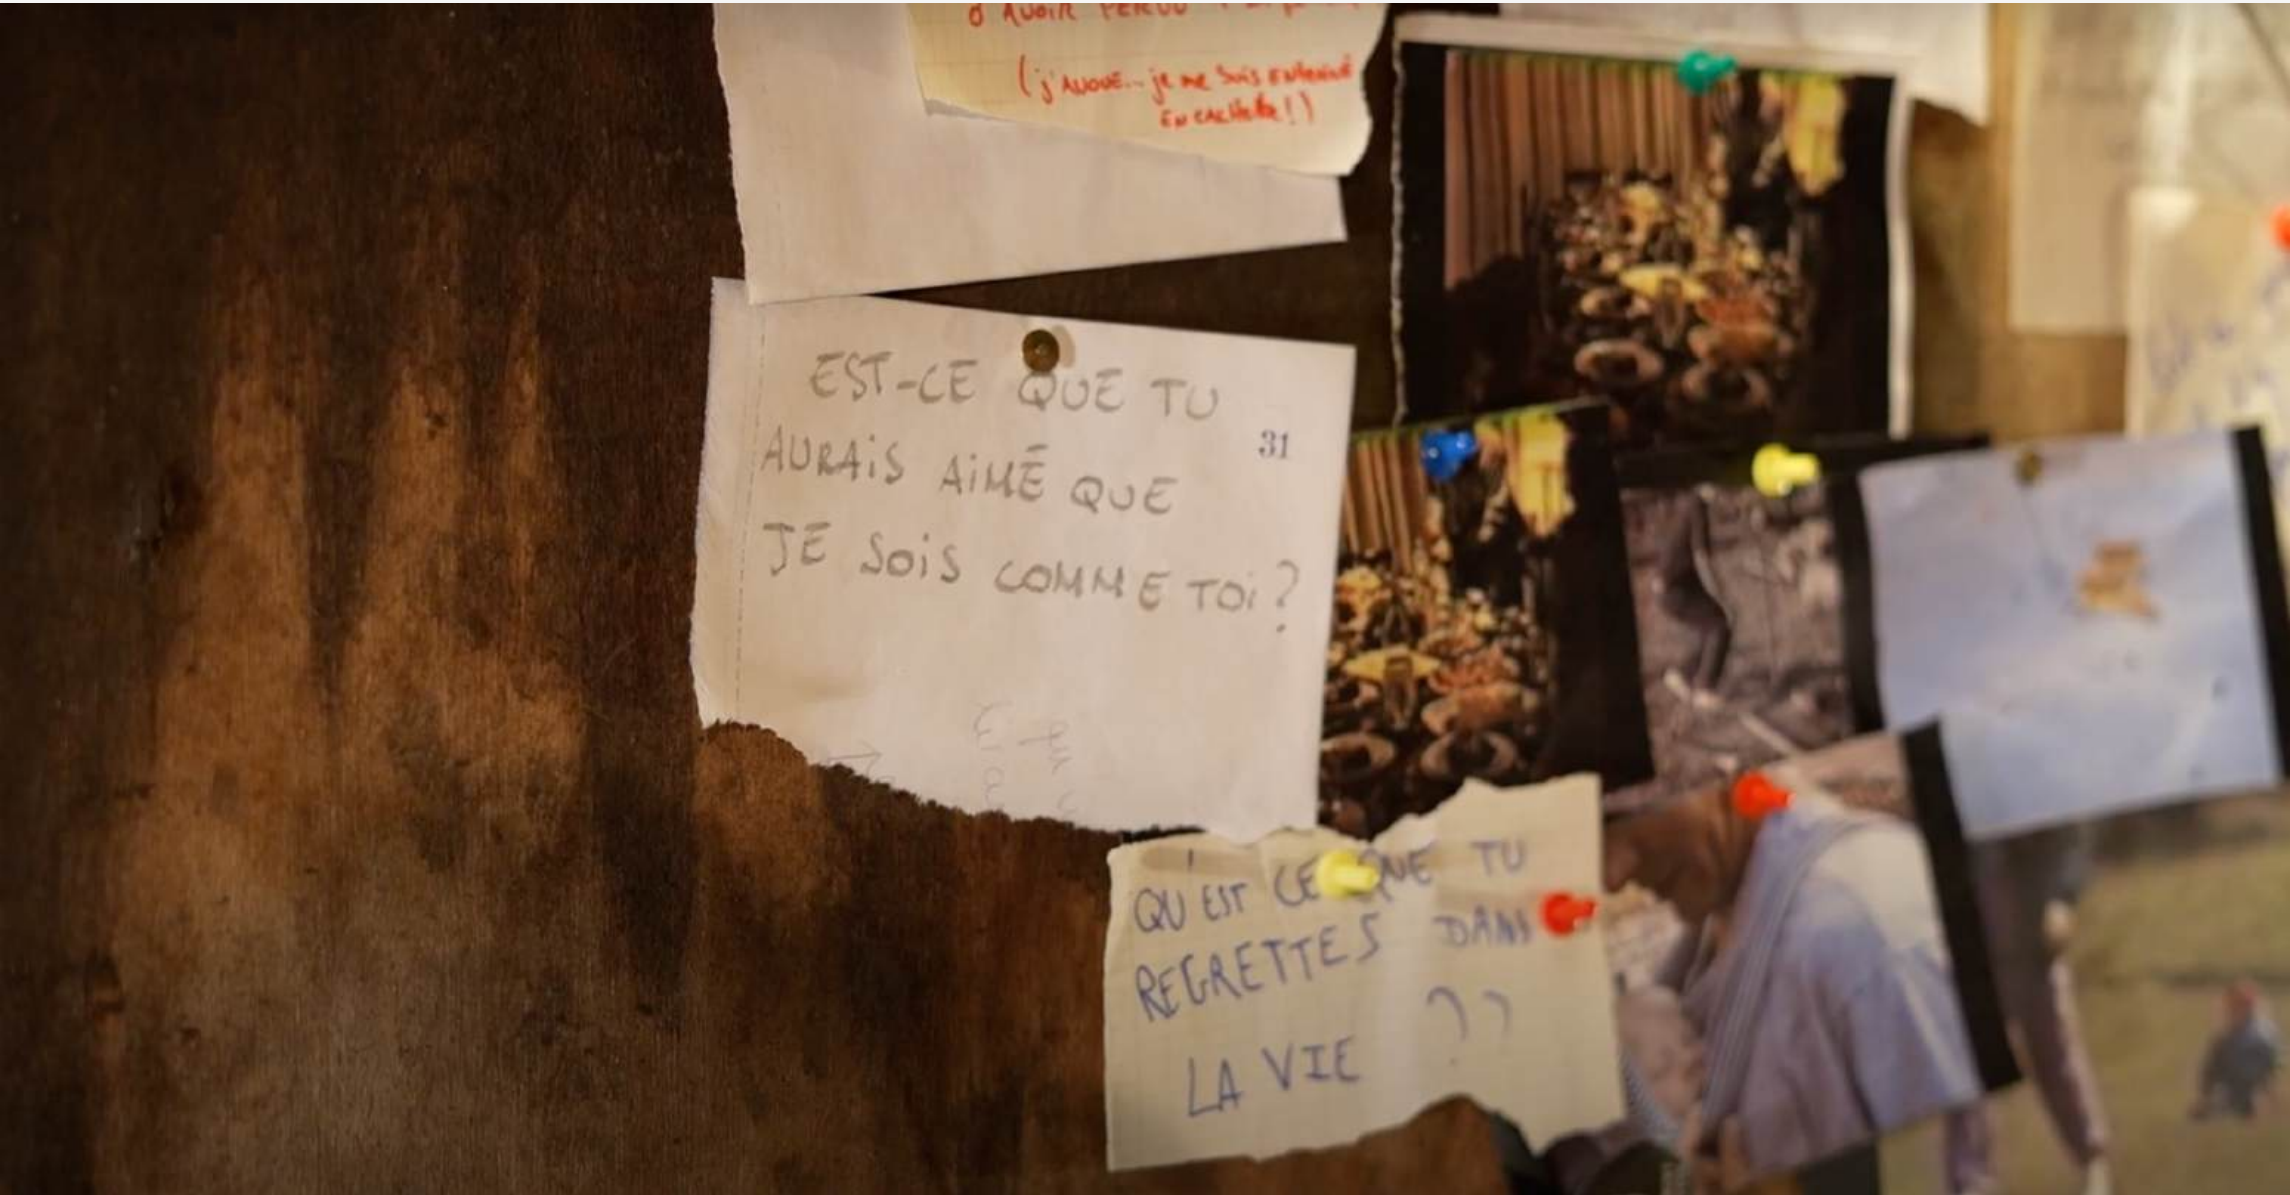 D'AVOIR PERDU
(j'AVOUE... je me suis ENTRAINÉ
EN CACHETTE!)
EST-CE QUE TU
AURAIS AIMÉ QUE
31
JE SOIS COMME TOI ?
QU'EST CE QUE TU
REGRETTES DANS
LA VIE ??